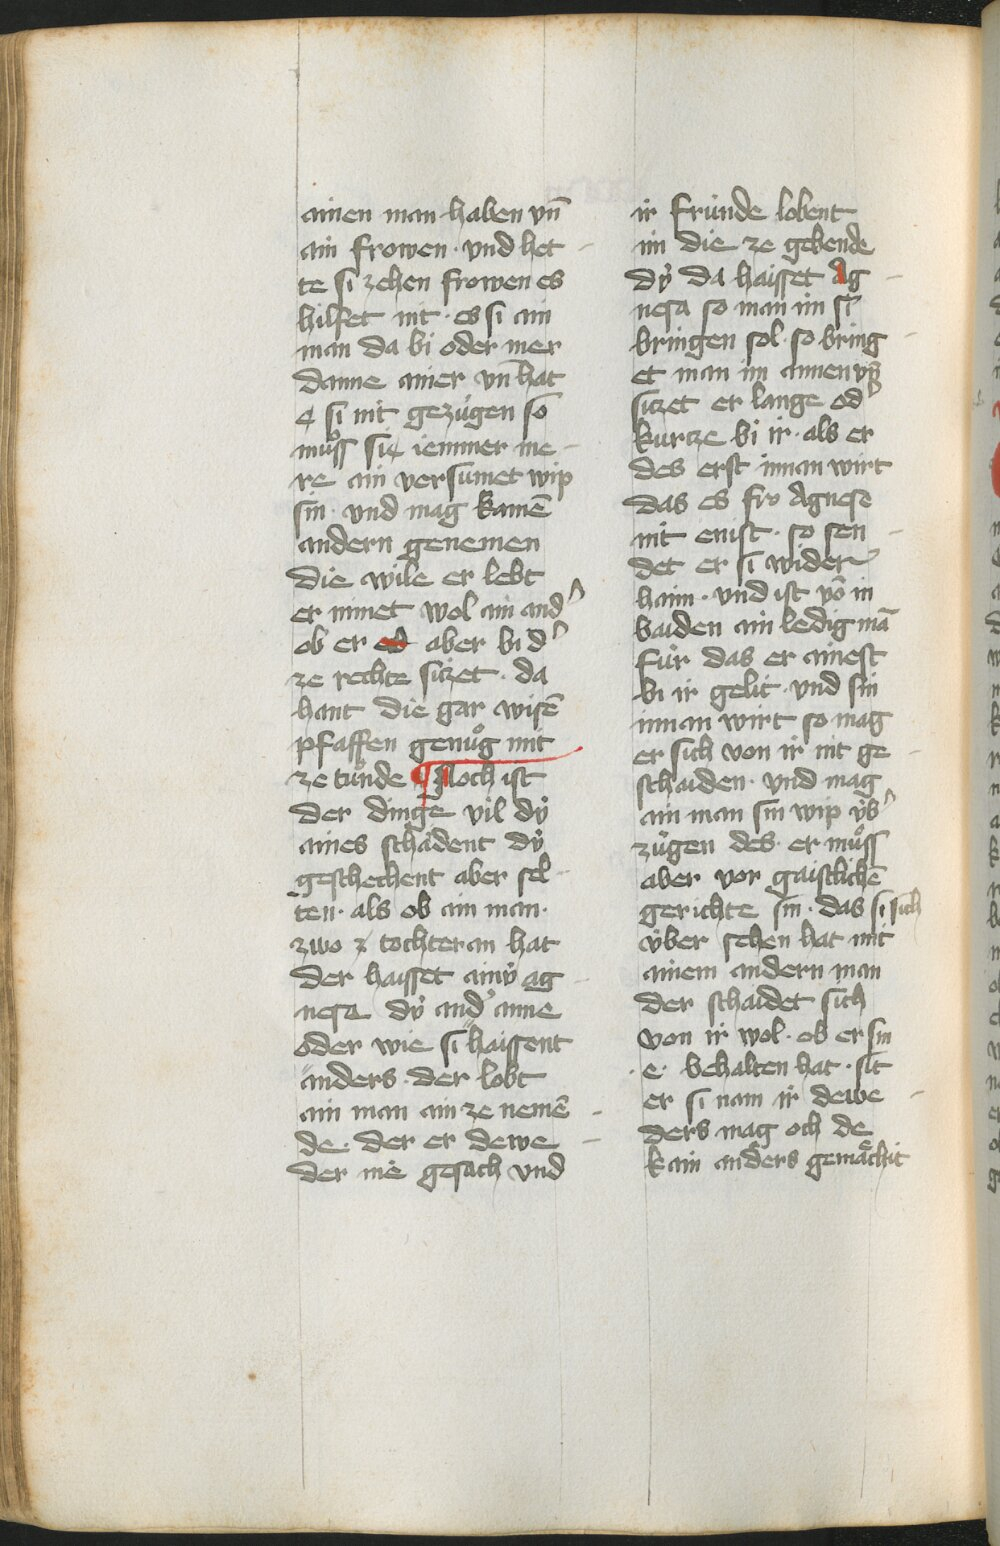 ainen man haben vn̄
ain frowen · vnd het
te si zehen frowen es
hilfet nit · es si ain
man da bi oder mer
danne ainer vn̄ hat
si nit gezúgen so
můss si iemmer me
re ain versumet wip
sin · vnd mag kainē
andern genemen
die wile er lebt
er nimet wol ain and͛
ob er aber bi d͛
ze rechte sitzet · da
hant die gar wisē
pfaffen genůg mit
ze tůnde ¶ Noch ist
der dinge vil dv́
aines schadent dv́
geschechent aber sel
ten · als ob ain man ·
zwo tochteran hat
der haisset ainv́ ag
nesa dv́ and͛ anne
oder wie si haissent
anders · der lobt
ain man ain ze nemē
de · der er dewe
der me gesach vnd
ir frúnde lobent
im die ze gebende
dv́ da haisset Ag
nesa so man im si
bringen sol · so bring
et man im annen vn̄
sitzet er lange od͛
kurtze bi ir · als er
des erst innan wirt
das es fro Agnese
nit enist · so sen
det er si wider
haim · vnd ist vō in
baiden ain ledig mā
fúr das er ainest
bi ir gelit · vnd sin
innan wirt so mag
er sich von ir nit ge
schaiden · vnd mag
ain man sin wip v́b͛
zúgen des · er můss
aber vor gaistlichē
gerichte sin · das si sich
v́ber sehen hat mit
ainem andern man
der schaidet sich
von ir wol · ob er sin
· e · behalten hat · sit
er si nam ir dewe
ders mag och de
kain anders gemächit